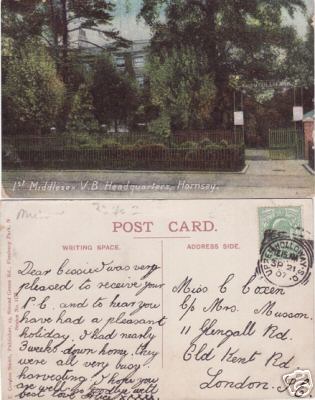 1st Middlesex V.B. Headquarters, Hornsey.
POST CARD.
WRITING SPACE.
ADDRESS SIDE.
Dear Cissie I was very
pleased to receive your
P.C. and to hear you
have had a pleasant
holiday. I had nearly
3 weeks down home, they
were all very busy
harvesting. I hope you
are well
best love
Miss C Coxen
C/o Mrs. Musson.
11 Glengall Rd.
Old Kent Rd
London. S.E.
HOLLOWAY
SP 21
07